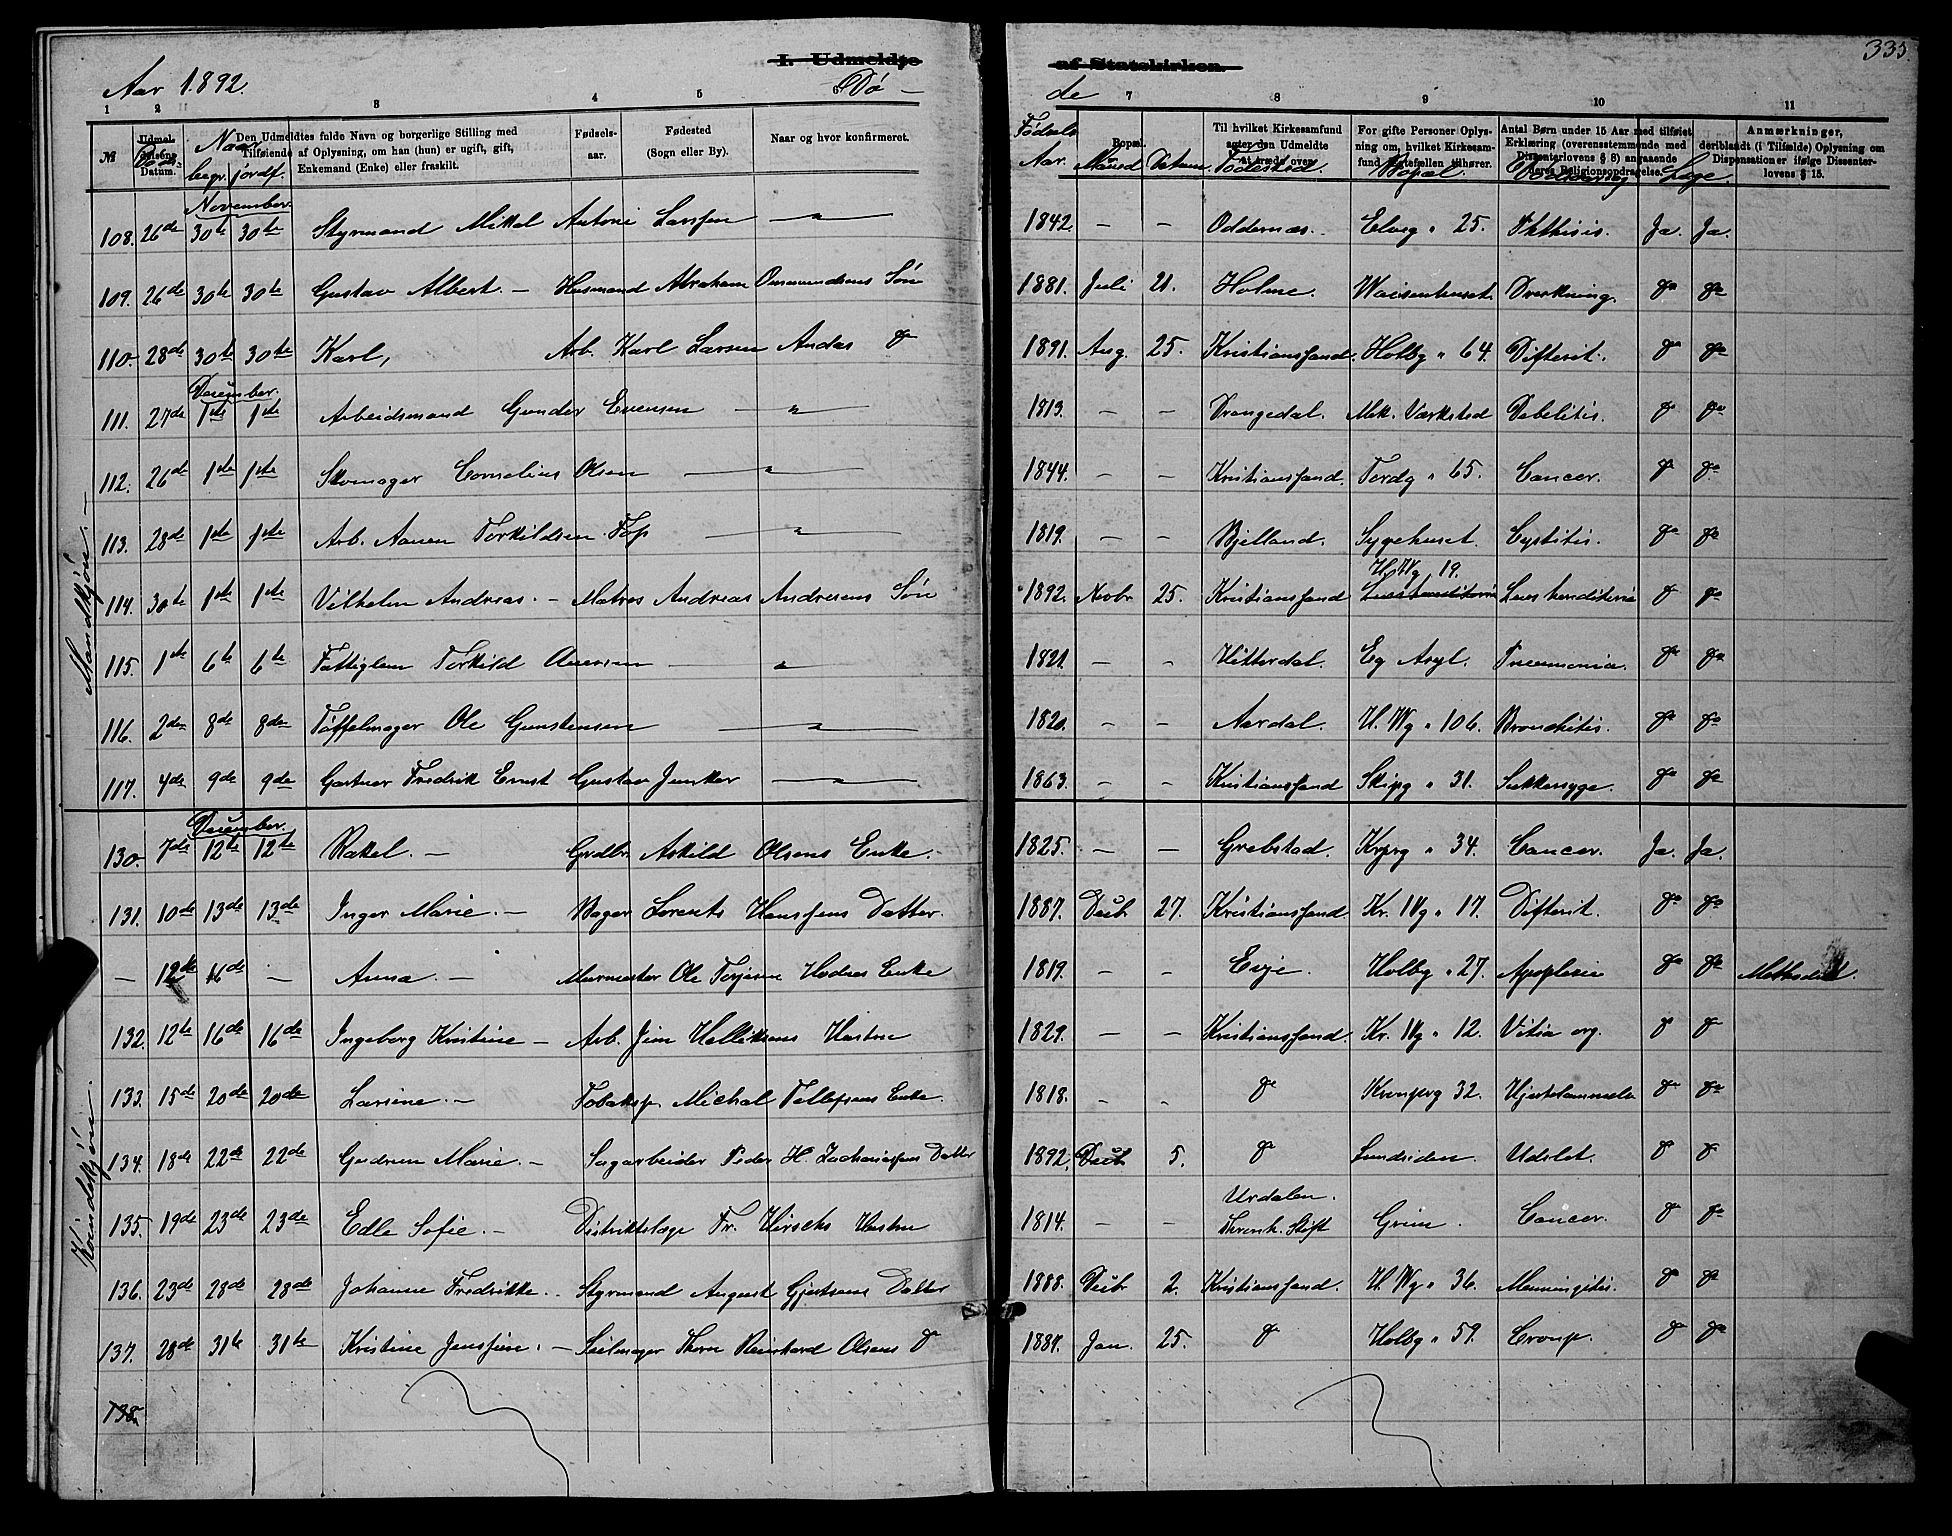 335.
I. Udmeldte af Statskirken.
Aar 1892. Døde
1 2 3 4 5 6 7 8 9 10 11
№ Udmeldelsens Datum. Den Udmeldtes fulde Navn og borgerlige Stilling med Tilføiende af Oplysning, om han (hun) er ugift, gift, Enkemand (Enke) eller fraskilt. Fødselsaar. Fødested (Sogn eller By). Naar og hvor konfirmeret. Bopæl. Til hvilket Kirkesamfund agter den Udmeldte at træde over. For gifte Personer Oplysning om, hvilket Kirkesamfund Ægtefællen tilhører. Antal Børn under 15 Aar med tilføiet Erklæring (overensstemmende med Dissenterlovens § 8) angaaende deres Religionsopdragelse. Anmærkninger, deriblandt (i Tilfælde) Oplysning om Dispensationer ifølge Dissenterlovens § 15.
Naar begr. jordf. Fødsels Aar. Maaned Datum. Fødested. Bopæl. Dødsaarsag Læge.
Mandkjøn.
November.
108. 26de 30te 30te Styrmand Mikal Antoni Larssen — " — 1842. – – Oddernæs. Elveg " 25. Phthisis. Ja. Ja.
109. 26de 30te 30te Gustav Albert. – Husmand Abraham Ommundsens Søn 1881. Juli 21. Holme. Waisenhuset. Drukning. do do
110. 28de 30te 30te Karl, Arb. Karl Larsen Andas do 1891. Aug. 25. Kristianssand. Holbg " 64. Difterit. do do
December.
111. 27de 1ste 1ste Arbeidsmand Gunder Evensen — " — 1813. – – Drangedal. Mek. Værksted Debilitis. do do
112. 26de 1ste 1ste Skomager Cornelius Olsen — " — 1844. – – Kristianssand. Tordg " 65. Cancer. do do
113. 28de 1ste 1ste Arb. Aanen Torkildsen Foss — " — 1819. – – Bjelland. Sygehuset. Cystitis. do do
114. 30te 1ste 1ste Vilhelm Andreas. – Matros Andreas Andresens Søn 1892. Novbr 25. Kristianssand H. Wg 19. Lues hereditaria do do
115. 1ste 6te 6te Fattiglem Torkild — " — 1821. – – Hitterdal. Eg Asyl. Pneumonia. do do
116. 2den 8de 8de Tøffelmager Ole Gunstensen — " — 1820. – – Aardal. H. Wg " 106. Bronchitis. do do
117. 4de 9de 9de Gartner Fredrik Ernst Gustav Junker — " — 1863. – – Kristianssand Skipg " 31. Sukkersyge. do do
Kvindekjøn.
December.
130. 7de 12te 12te Rakel. – Grdbr. Askild Olsens Enke. 1825. – – Grebstad. Krprg " 34. Cancer. Ja. Ja.
131. 10de 13de 13de Inger Marie. – Bager Lorents Hanssens Datter. 1887. Decb 27. Kristianssand. Kr. IVg " 17. Difterit. do do
– 12te 16de – Anna. – Murmester Ole Torjesen Hodnes Enke 1819. – – Evje. Holbg " 27. Apoplexia do do Methodist.
132. 12te 16de 16de Ingeborg Kristine – Arb. Hustru 1829. – – Kristianssand. Kr. IVg " 12. Vitia org. do do
133. 15de 20de 20de Larsine. – Tobaksp. Michal Tellefsens Enke. 1818. – – do Kronprg 32. Hjertelammelse do do
134. 18de 22de 22de Gudrun Marie. – Sagarbeider Peder H. Zachariassens Datter 1892. Decb 5. do Lundsiden. Udslet. do do
135. 19de 23de 23de Edle Sofie. – Distriktslæge Fr. Hirschs Hustru 1814. – – Urdalen. Thronh. Stift Grim. Cancer. do do
136. 23de 28de 28de Johanne Fredrikke. – Styrmand August Gjertsens Datter 1888. Decb 2. Kristianssand. H. Wg " 36. Menningitis. do do
137. 28de 31te 31te Kristine Jenssine. – Seilmager Thorv Reinhard Olsens do 1887. Jan. 25. do Holbg " 59. Croup. do do
138.